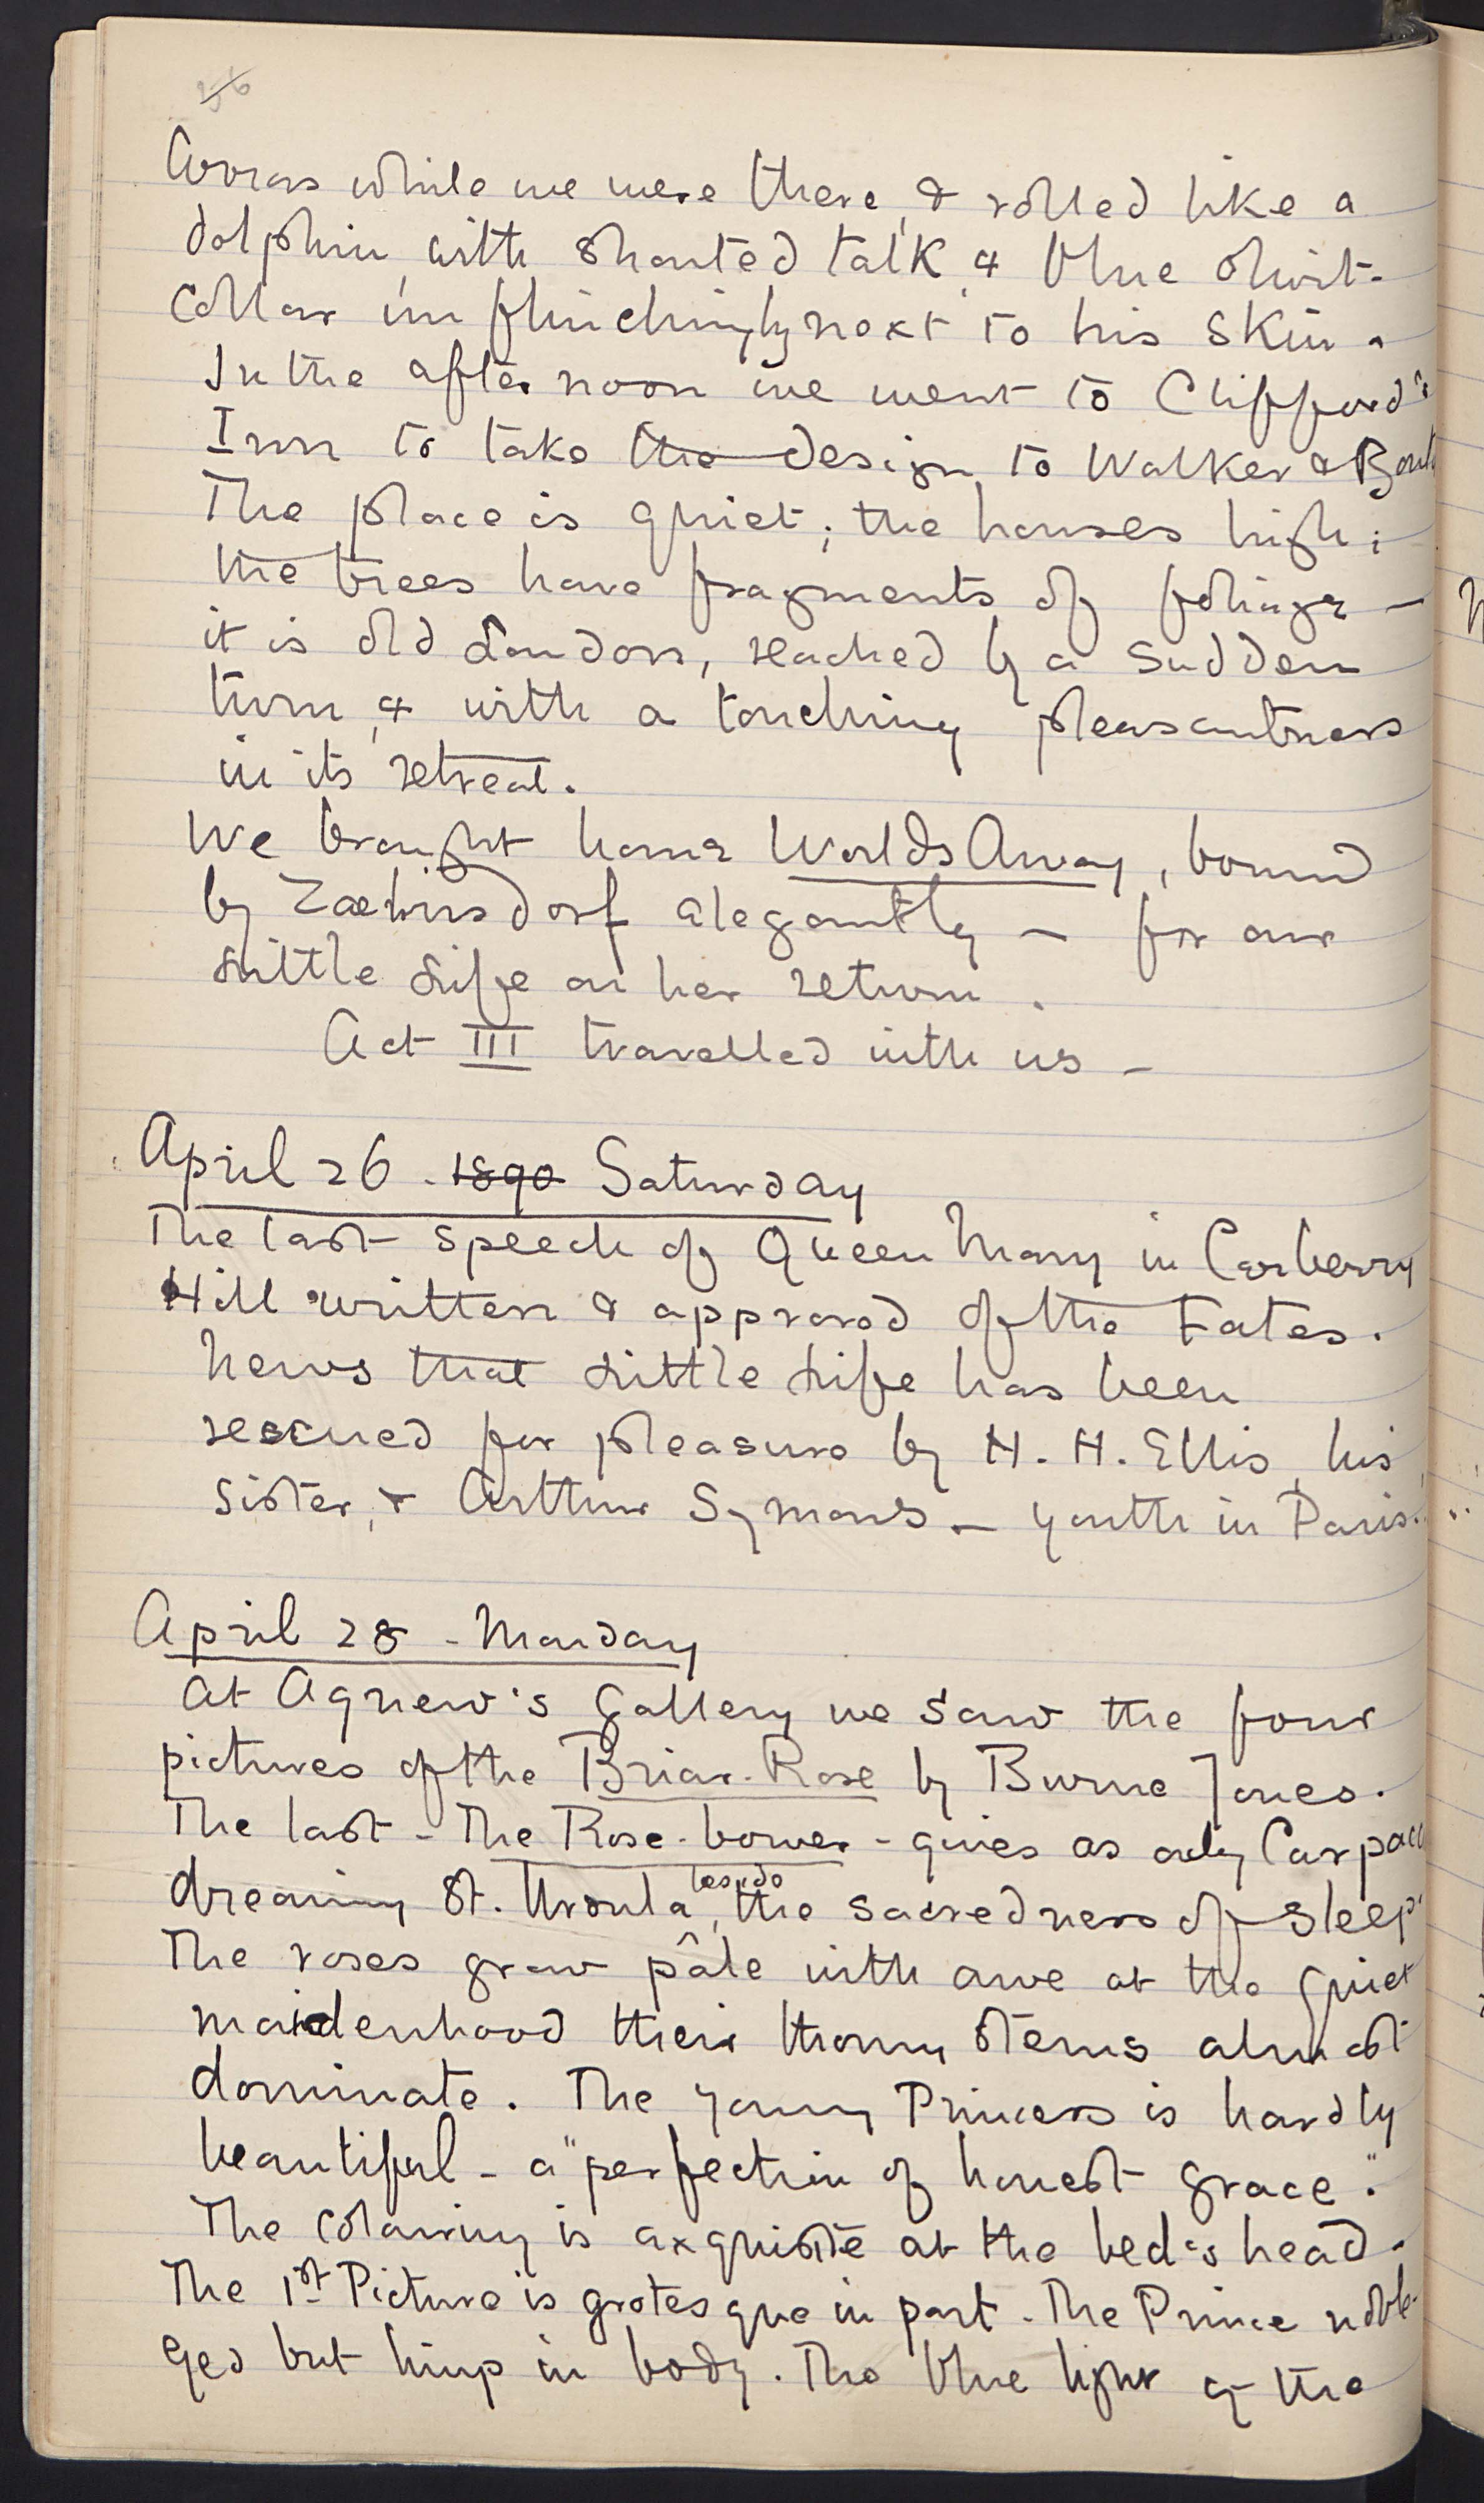 across while we were there, & rolled like a
dolphin, with shouted talk, & blue shirt-
collar unflinchingly next to his skin.
In the afternoon we went to Clifford's
Inn to take the design to Walker & Bout
The place is quiet; the houses high;
the trees have fragments of foliage —
it is old London, reached by a sudden
turn, & with a touching pleasantness
in its retreat.
We brought home Worlds Away, bound
by Zaehnsdorf elegantly — for our
Little Life on her return.
Act III travelled with us —
April 26. 1890 Saturday
The last speech of Queen Mary in Carberry
Hill written & approved of the Fates.
News that Little Life has been
rescued for pleasure by H. H. Ellis, his
sister, & Arthur Symons — youth in Paris.
April 28 - Monday
At Agnew's Gallery we saw the four
pictures of the Briar-Rose by Burne Jones.
The last - The Rose-bower - gives as only Carpacc
dreaming St. Ursula, besides the sacredness of sleep.
The roses grow pâle with awe at the quiet
maidenhood their thorny stems almost
dominate. The young Princess is hardly
beautiful - a "perfection of honest grace."
The colouring is exquisite at the bed's head.
The 1st Picture is grotesque in part. The Prince noble-
eyed but limp in body. The blue light of the